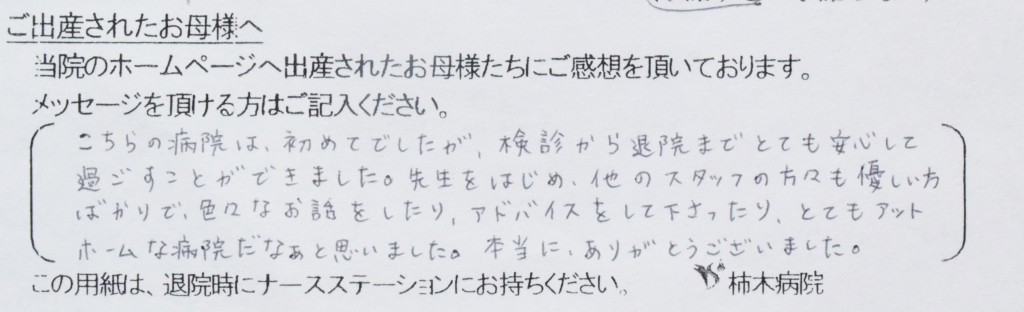 ご出産されたお母様へ
当院のホームページへ出産されたお母様たちにご感想を頂いております。
メッセージを頂ける方はご記入ください。
こちらの病院は、初めてでしたが、検診から退院までとても安心して
過ごすことができました。先生をはじめ、他のスタッフの方々も優しい方
ばかりで、色々なお話をしたり、アドバイスをして下さったり、とてもアット
ホームな病院だなぁと思いました。本当に、ありがとうございました。
この用紙は、退院時にナースステーションにお持ちください。 柿木病院